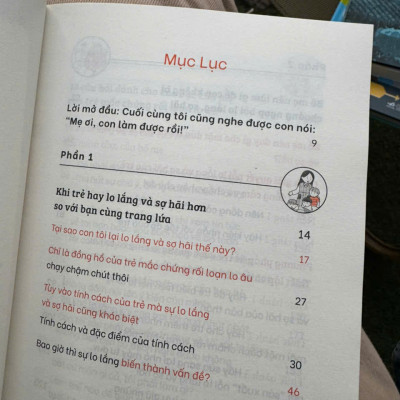 Mục Lục
Lời mở đầu: Cuối cùng tôi cũng nghe được con nói:
“Mẹ ơi, con làm được rồi!”
9
Phần 1
Khi trẻ hay lo lắng và sợ hãi hơn
so với bạn cùng trang lứa
14
Tại sao con tôi lại lo lắng và sợ hãi thế này?
17
Chỉ là đồng hồ của trẻ mắc chứng rối loạn lo âu
chạy chậm chút thôi
27
Tùy vào tính cách của trẻ mà sự lo lắng
và sợ hãi cũng khác biệt
Tính cách và đặc điểm của tính cách
30
Bao giờ thì sự lo lắng biến thành vấn đề?
46